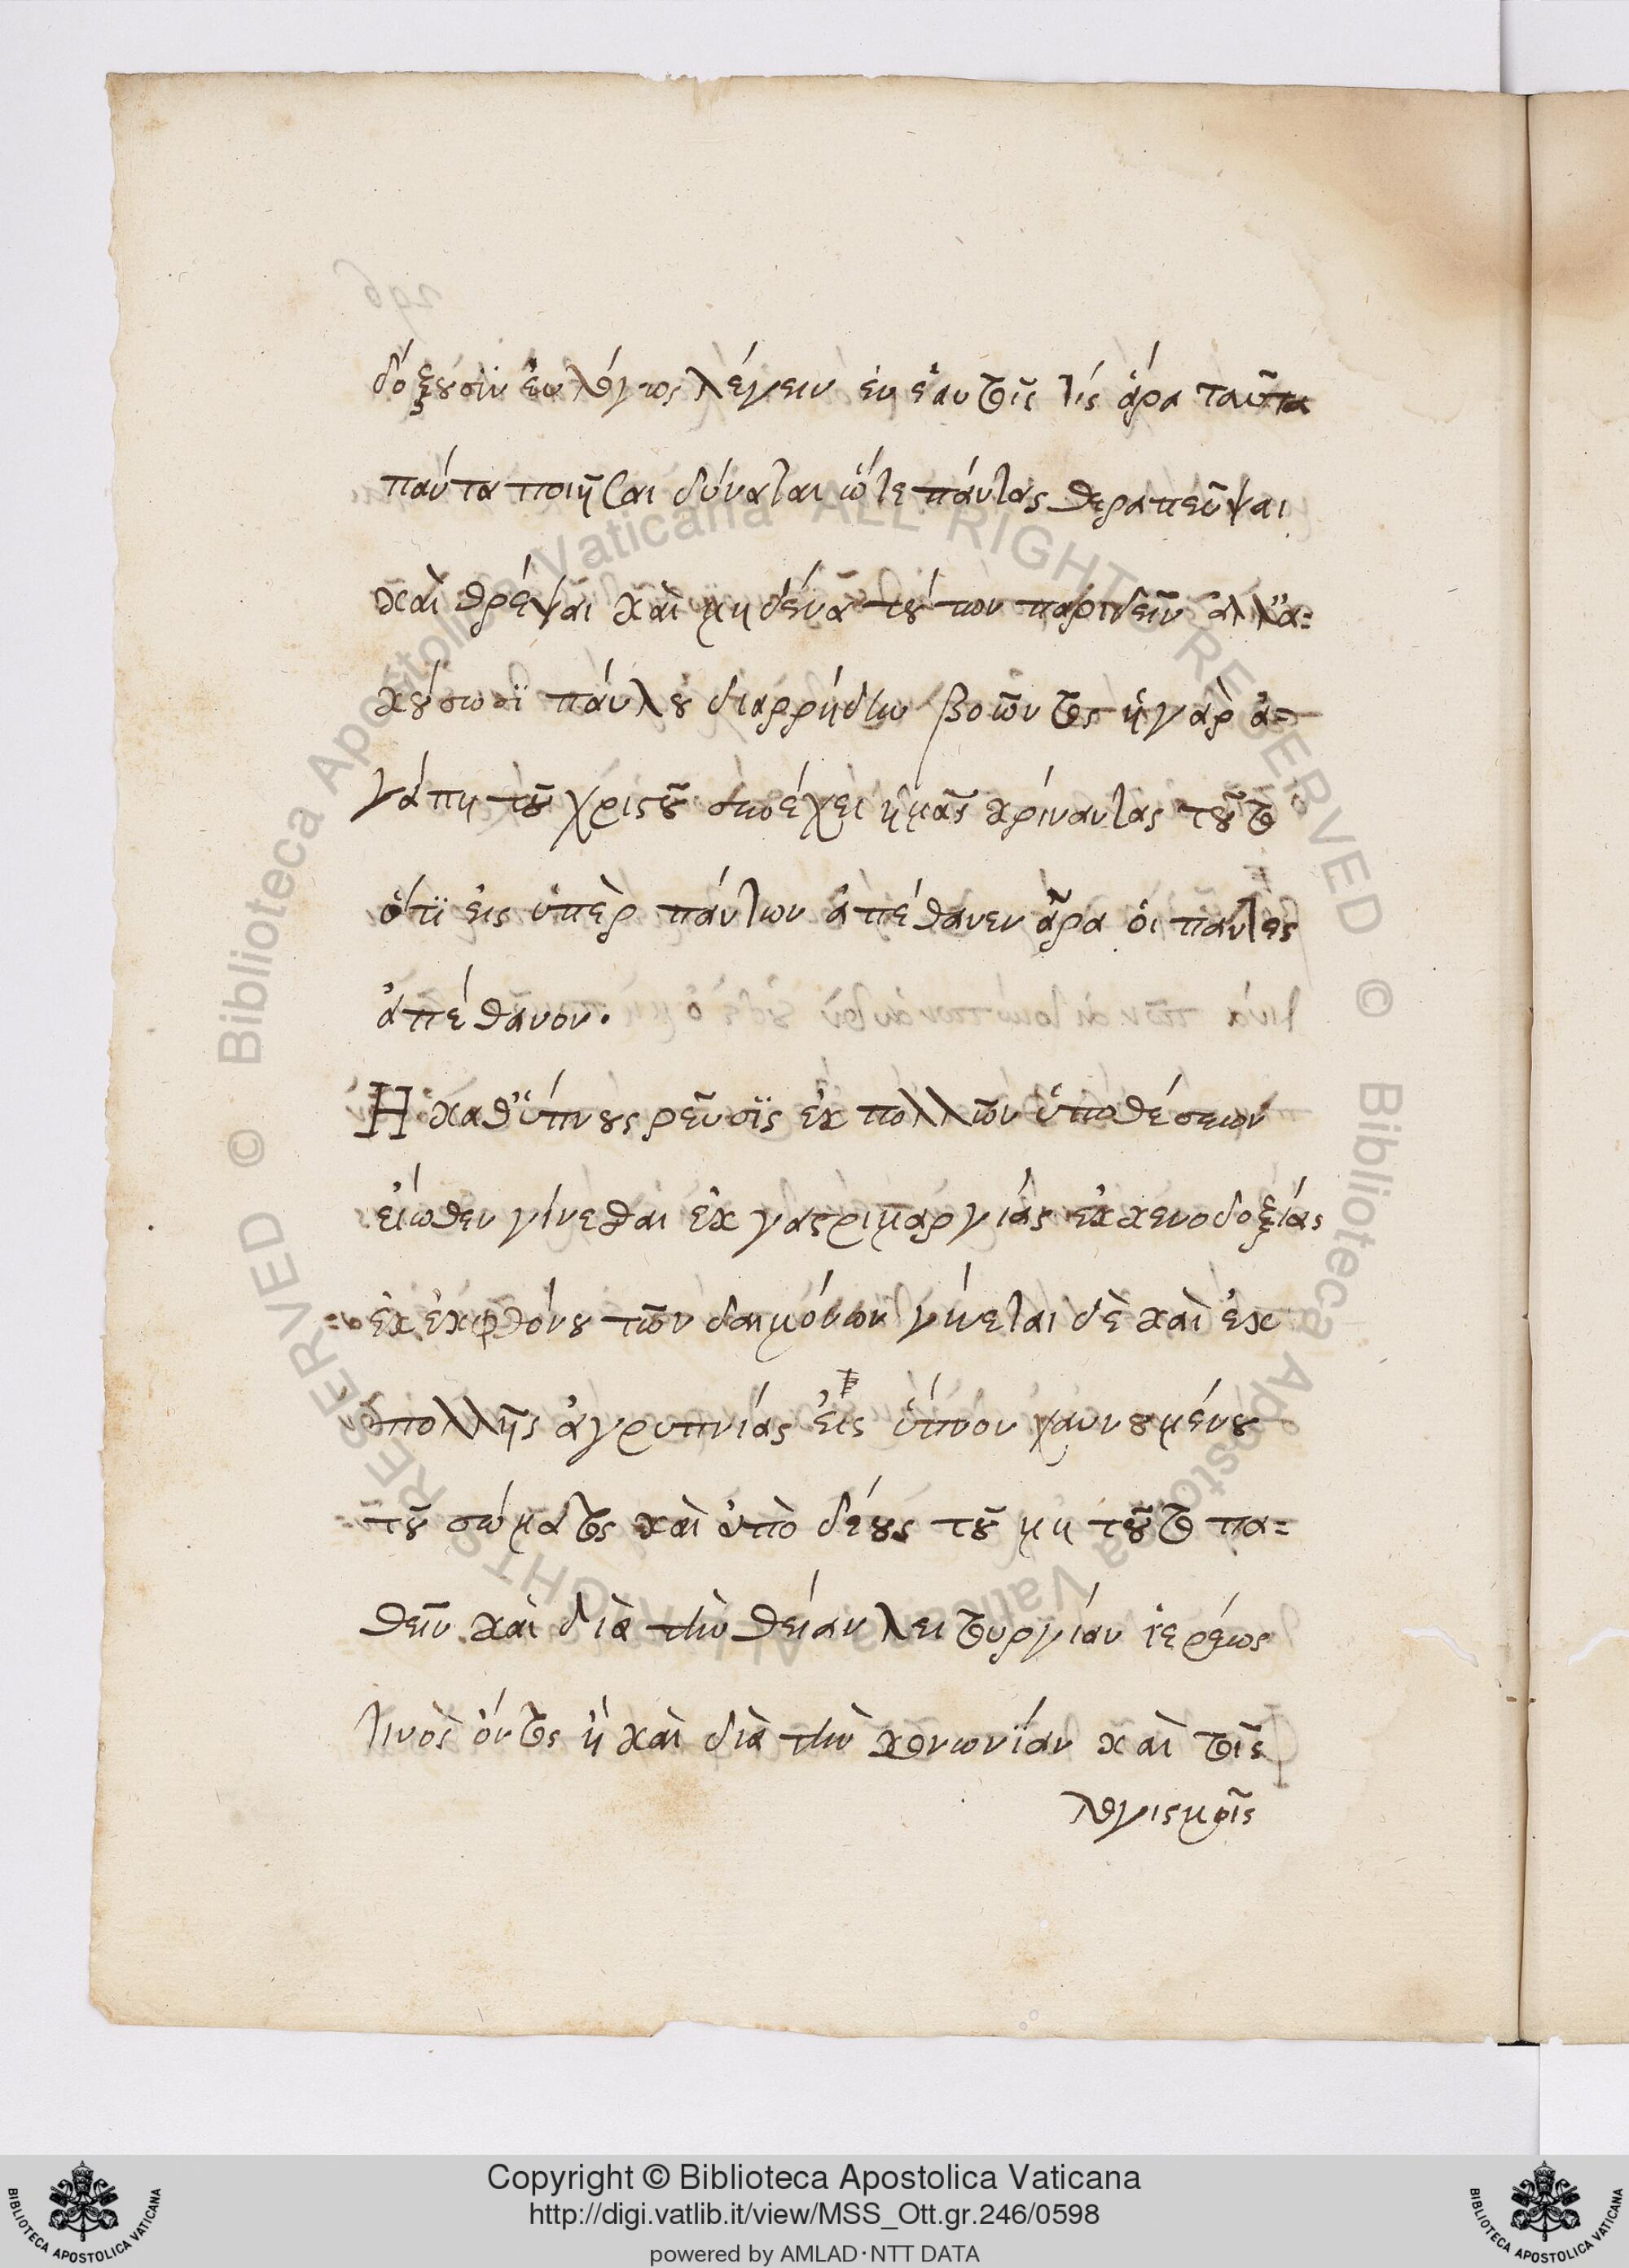 δόξουσϊν ἐυλόγως λέγειν ἐν ἑαυτοῖς τίς ἄρα ταῦτα
πάντα ποιῆσαι δύναται ὥστε πάντας θεραπεῦψαι
καὶ θρέψαι καὶ μηδένα τούτων παριδεῖν ἀλλ' ἀ=
κούσωσϊ πάυλου διαρρήδην βοῶντος ἡ γὰρ ἀ=
γάπη τοῦ χριστοῦ συνέχει ἡμᾶς κρίναντας τοῦτο
ὅτϊ εἰς ὑπὲρ πάντων ἀπέθανεν ἄρα ὁι πάντες
ἀπέθανον.
Η καθ' ὕπνους ῥεῦσϊς ἐκ πολλῶν ὑποθέσεων
εἰώθεν γίνεσθαι ἐκ γαστριμαργίας ἐκ κενοδοξίας
ἐκ ἐκφθόνου τῶν δαιμόνων γίνεται δὲ καὶ ἐκ
πολλῆς ἀγρυπνίας ἐις ὕπνον χαυνουμένου
τοῦ σώματος καὶ ὑπὸ δέους τοῦ μη τοῦτο πα=
θεῖν καὶ διὰ τὴν θείαν λειτουργίαν ἱερέως
τινὸς ὄντος ἢ καὶ διὰ τὴν κοινωνϊαν καὶ τοῖς
λογισμοῖς
Copyright © Biblioteca Apostolica Vaticana
http://digi.vatlib.it/view/MSS_Ott.gr.246/0598
powered by AMLAD·NTT DATA
BIBLIOTECA APOSTOLICA VATICANA
BIBLIOTECA APOSTOLICA VATICANA